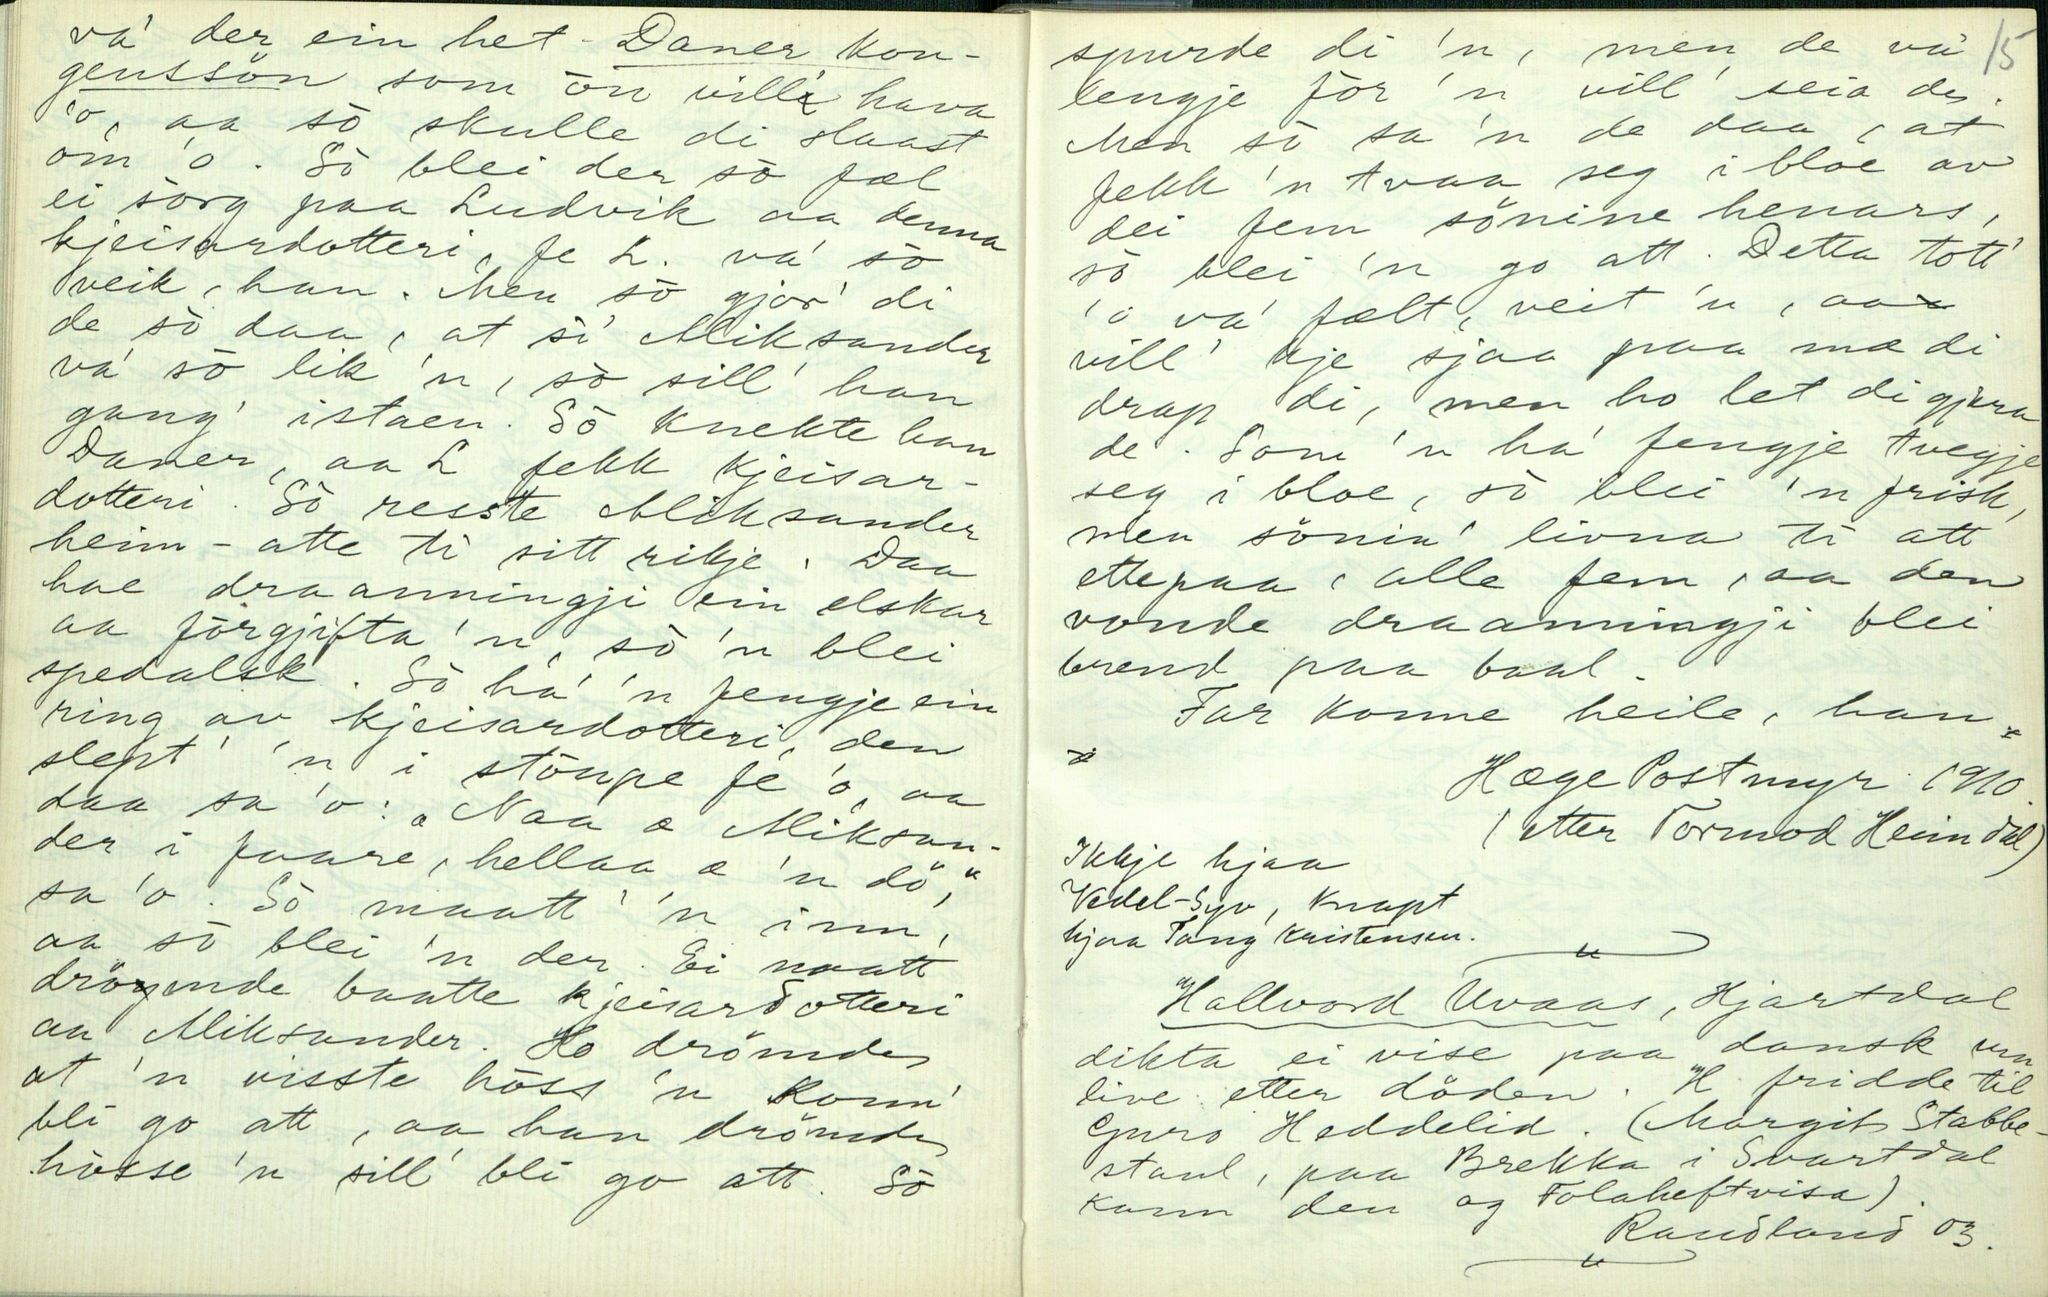 vá der ein het - Daner Kon-
genssön som ön vill'e hava
'o, aa sò skulle di slaast
om 'o. Sò blei der sò fæl
ei sorg paa Ludvik aa denna
kjeisardotteri, fe L. vá sò
veik, han. Men sò gjor' di
de sò daa, at si' Aliksander
vá sò lik 'n, sò sill' han
gang' istaen. Sò knekte han
Daner, aa L fekk kjeisar-
dotteri. Sò resste Aliksander
heim-atte ti sitt rikje. Daa
hae draanningji ein elskar
aa förgjifta 'n, sò 'n blei
spedalsk. Sò há 'n fengje ein
ring av kjeisardotteri, den
slept' 'n i stöupe fe 'o, aa
daa sa 'o: „Naa æ Aliksan-
der i faare, hellaa æ 'n dö,"
sa 'o. Sò maatt' 'n inn,
aa sò blei 'n der. Ei naatt
dröymde baatte kjeisardotteri
aa Aliksander. Ho drömde
at 'n visste höss 'n konn'
bli go att, aa han drömde
hösse 'n sill' bli go att. Sò
15
spurde di 'n, men de vá
lengje för 'n vill' seia de.
Men sò sa 'n de daa, at
fekk 'n tvaa seg i bloe av
dei fem sönine henars,
sò blei 'n go att. Detta tott'
'o vá fælt, veit 'n, aa
vill' kje sjaa paa mæ di
drap di, men ho let di gjera
de. Som 'n há fengje tvegje
seg i bloe, sò blei 'n frisk,
men sönin' livna ti att
ettepaa, alle fem, aa den
vonde draanningji blei
brend paa baal.
Far konne heile, han.
Hæge Postmyr 1910.
(etter Tormod Heimdal)
Ikkje hjaa
Vedel-Syv, knapt
hjaa Tang Kristensen.
Hallvord Uvaas, Hjartdal
dikta ei vise paa dansk um
live etter döden. H. fridde til
Guro Heddelid. (Margit Stabbe-
staul, paa Brekka i Svartdal
kann den og Folaheftvisa).
Randland 03.